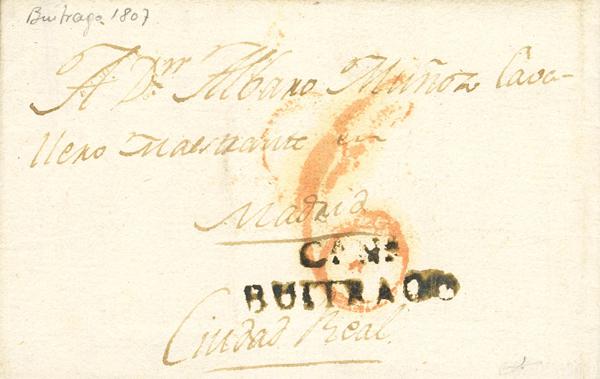 Buitrago. 1807
A Dn. Albaro Muñoz Cava-
llero Maestrante en
Madrid
CANA
BUITRAGO
Ciudad Real.